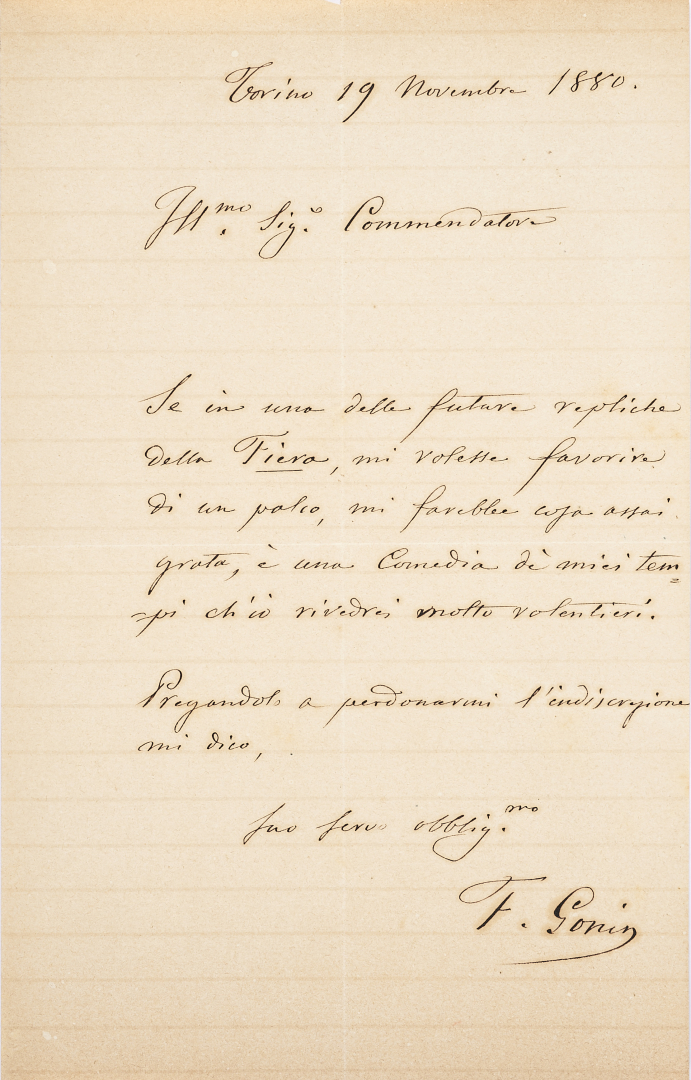 Torino 19 Novembre 1880.
Ill.mo Sig.e Commendatore
Se in una delle future repliche
della Fiera, mi volesse favorire
di un palco, mi farebbe cosa assai
grata, è una Comedia dè miei tem=
=pi ch'io rivedrei molto volentieri.
Pregandolo a perdonarmi l'indiscrezione
mi dico,
suo servo obblig.mo
F. Gonin